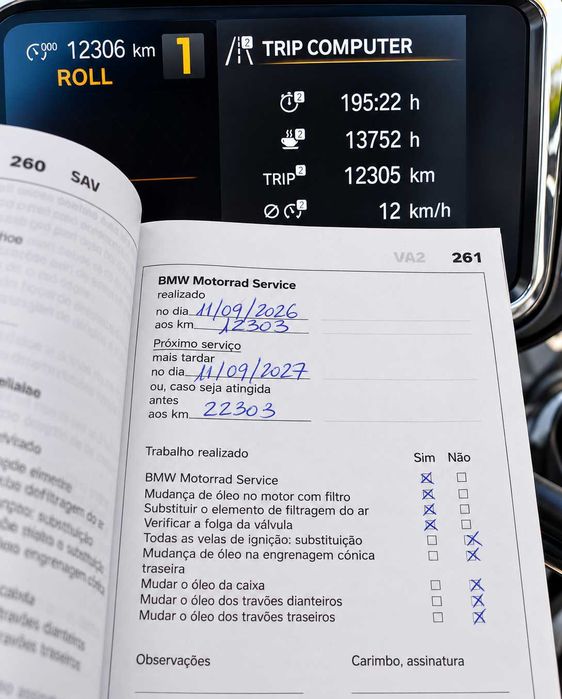 000 12306 km 1
ROLL
2 TRIP COMPUTER
2 195:22 h
2 13752 h
TRIP 2 12305 km
Ø 2 12 km/h
260 SAV
VA2 261
BMW Motorrad Service
realizado
no dia 11/09/2026
aos km 12303
Próximo serviço
mais tardar
no dia 11/09/2027
ou, caso seja atingida
antes
aos km 22303
Trabalho realizado Sim Não
BMW Motorrad Service
Mudança de óleo no motor com filtro
Substituir o elemento de filtragem do ar
Verificar a folga da válvula
Todas as velas de ignição: substituição
Mudança de óleo na engrenagem cónica
traseira
Mudar o óleo da caixa
Mudar o óleo dos travões dianteiros
Mudar o óleo dos travões traseiros
Observações Carimbo, assinatura